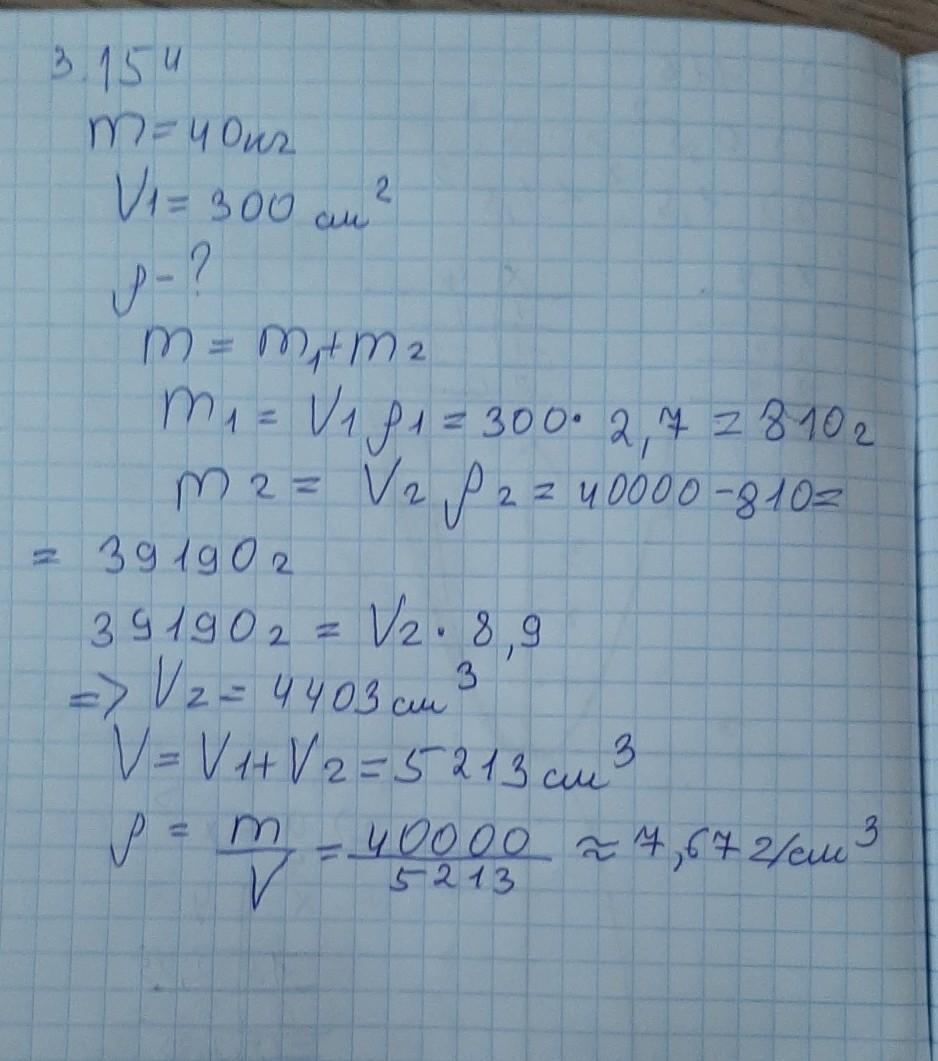 3.154
m = 40кг
V1 = 300 см²
ρ - ?
m = m1 + m2
m1 = V1 ρ1 = 300 · 2,7 = 810г
m2 = V2 ρ2 = 40000 - 810 =
= 39190г
39190г = V2 · 8,9
=> V2 = 4403 см³
V = V1 + V2 = 5213 см³
ρ = m/V = 40000/5213 ≈ 7,67 г/см³